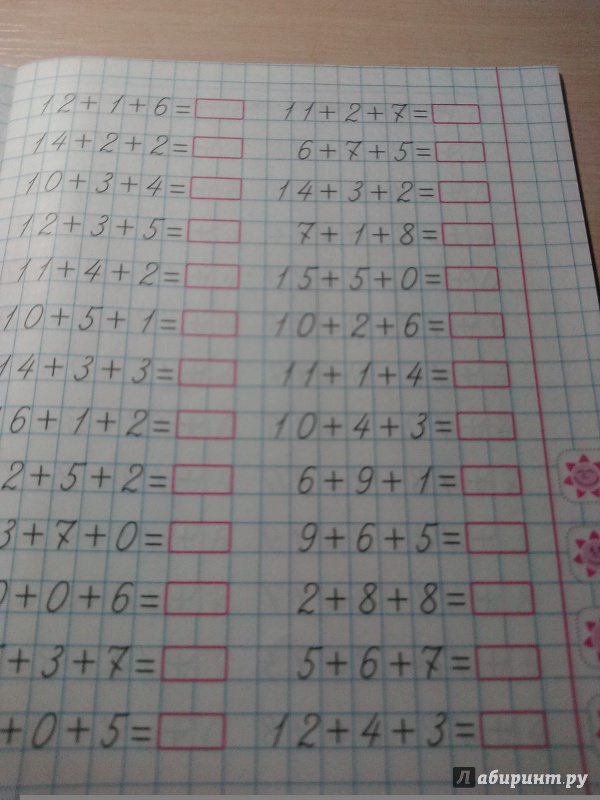 12+1+6=
14+2+2=
10+3+4=
12+3+5=
11+4+2=
10+5+1=
14+3+3=
16+1+2=
2+5+2=
3+7+0=
0+0+6=
+3+7=
+0+5=
11+2+7=
6+7+5=
14+3+2=
7+1+8=
15+5+0=
10+2+6=
11+1+4=
10+4+3=
6+9+1=
9+6+5=
2+8+8=
5+6+7=
12+4+3=
Лабиринт.ру